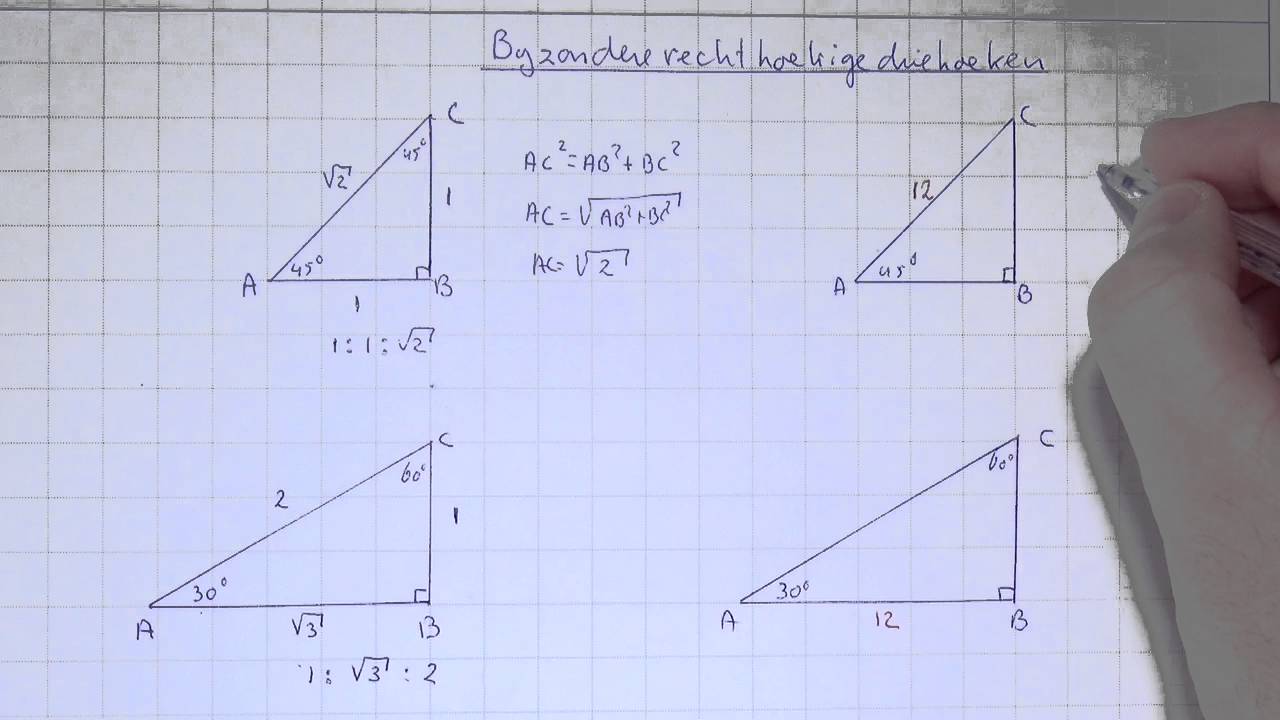 Byzondere rechthoekige driehoeken
C
45°
√2
1
A
45°
B
1
1 : 1 : √2
AC² = AB² + BC²
AC = √AB² + BC²
AC = √2
C
12
A
45°
B
C
60°
2
1
30°
A
√3
B
1 : √3 : 2
C
60°
30°
A
12
B